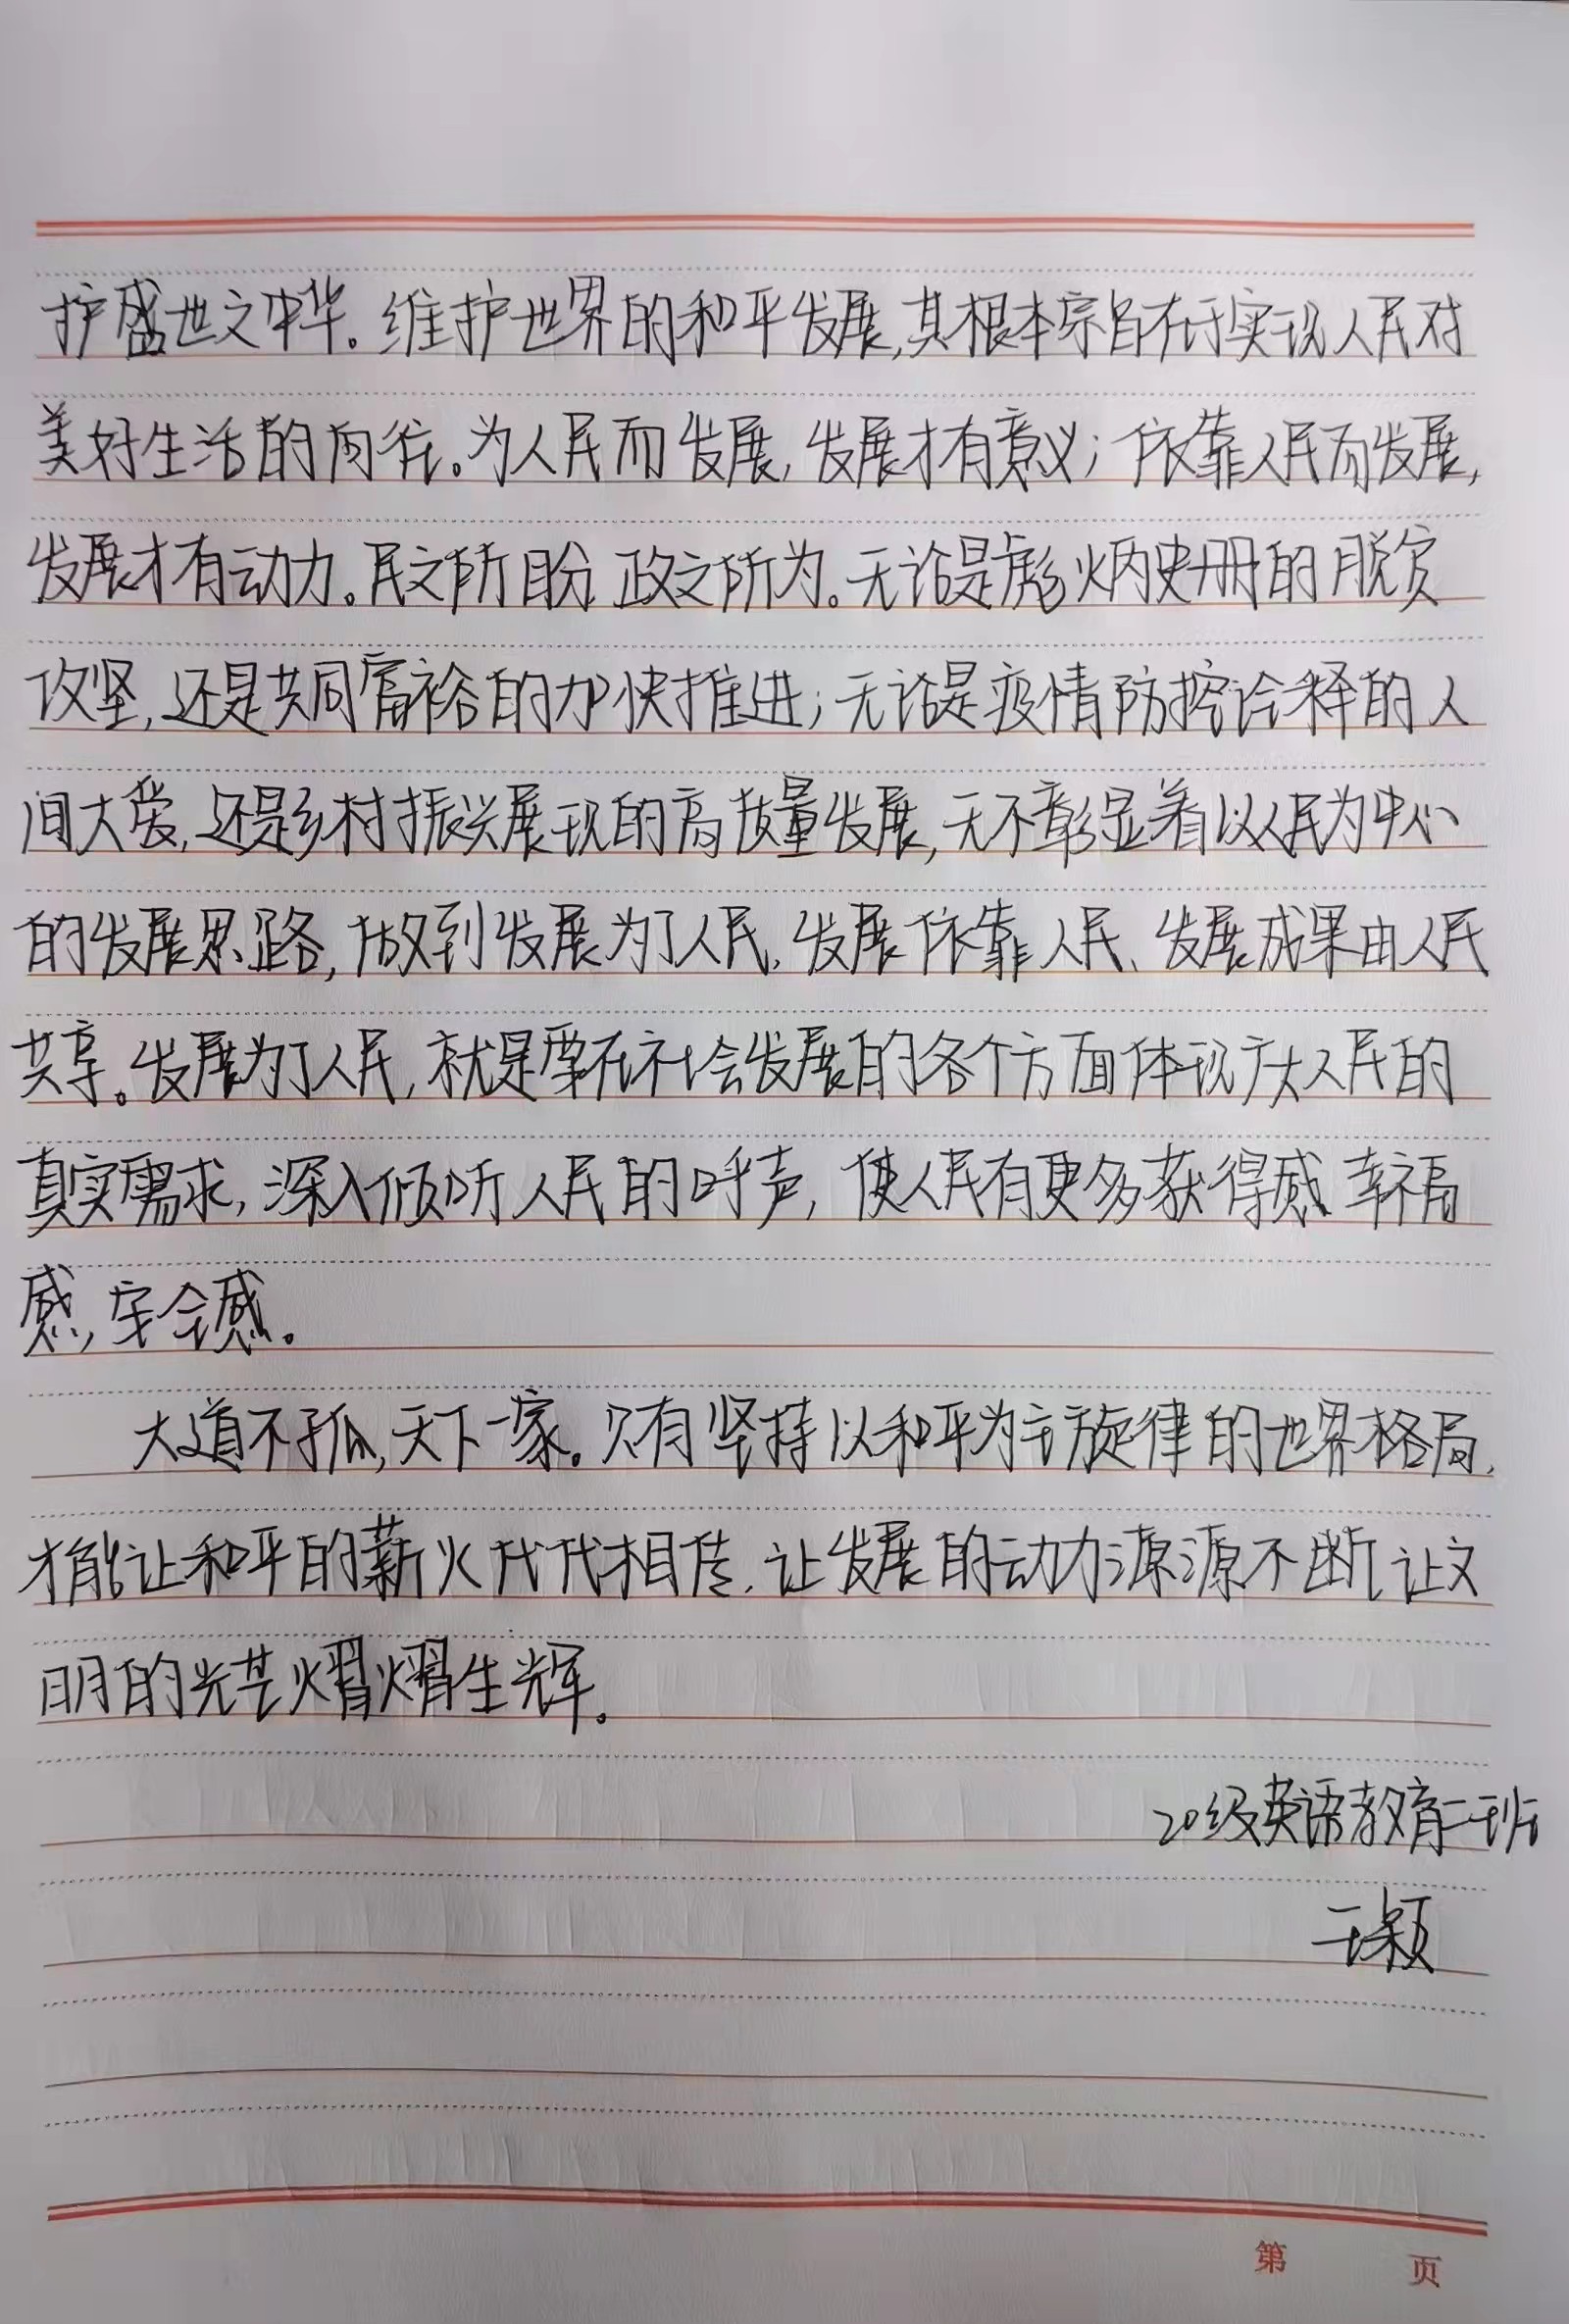 护盛世之中华。维护世界的和平发展,其根本宗旨在于实现人民对
美好生活的向往。为人民而发展,发展才有意义;依靠人民而发展,
发展才有动力。民之所盼 政之所为。无论是彪炳史册的脱贫
攻坚,还是共同富裕的加快推进;无论是疫情防控诠释的人
间大爱,还是乡村振兴展现的高质量发展,无不彰显着以人民为中心
的发展思路,做到发展为了人民、发展依靠人民、发展成果由人民
共享。发展为了人民,就是要在社会发展的各个方面体现广大人民的
真实需求,深入倾听人民的呼声,使人民有更多获得感 幸福
感,安全感。
大道不孤,天下一家。只有坚持以和平为主旋律的世界格局,
才能让和平的薪火代代相传,让发展的动力源源不断,让文
明的光芒熠熠生辉。
20级英语教育二班
颖
第 页